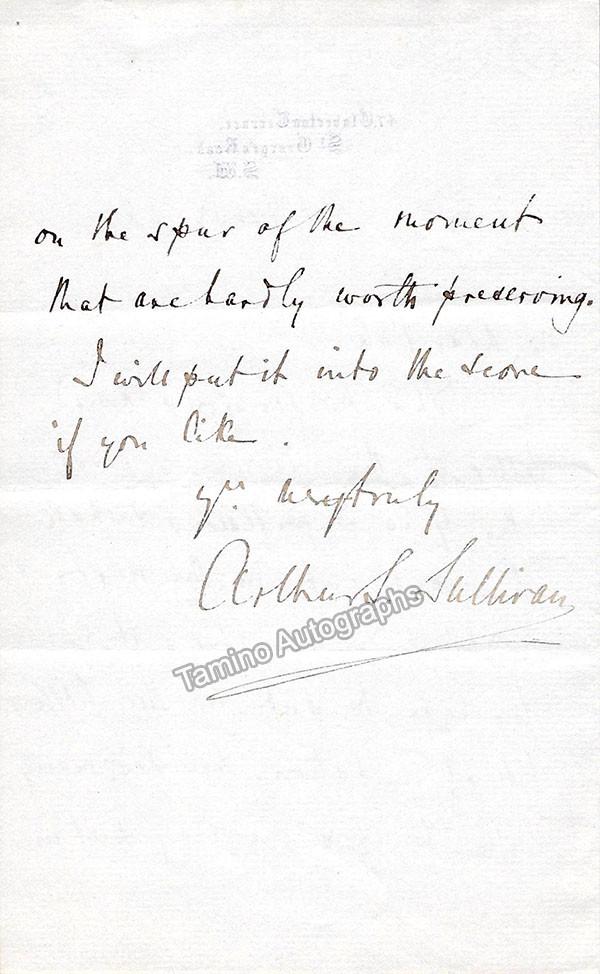 47, Claverton Terrace,
St. George's Road.
S.W.
on the spur of the moment
that are hardly worth preserving.
I will put it into the score
if you like.
yrs. very truly
Arthur S. Sullivan
Tamino Autographs